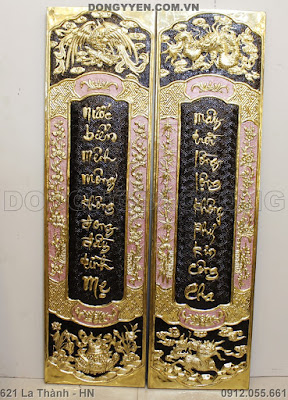 DONGYYEN.COM.VN
nước biển mênh mông không đong đầy tình Mẹ
mây trời lồng lộng không phủ kín công Cha
621 La Thành - HN
0912.055.661